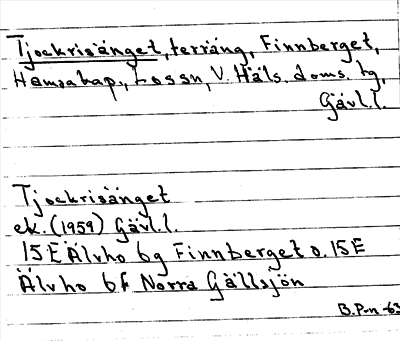 Tjockrisänget, terräng, Finnberget,
Hamra kap., Lossn, V. Häls. doms. tg,
Gävl.l.
Tjockrisänget
ek. (1959) Gävl.l.
15E Älvho 6g Finnberget o. 15E
Älvho 6f Norra Gällsjön
B.P-n -63